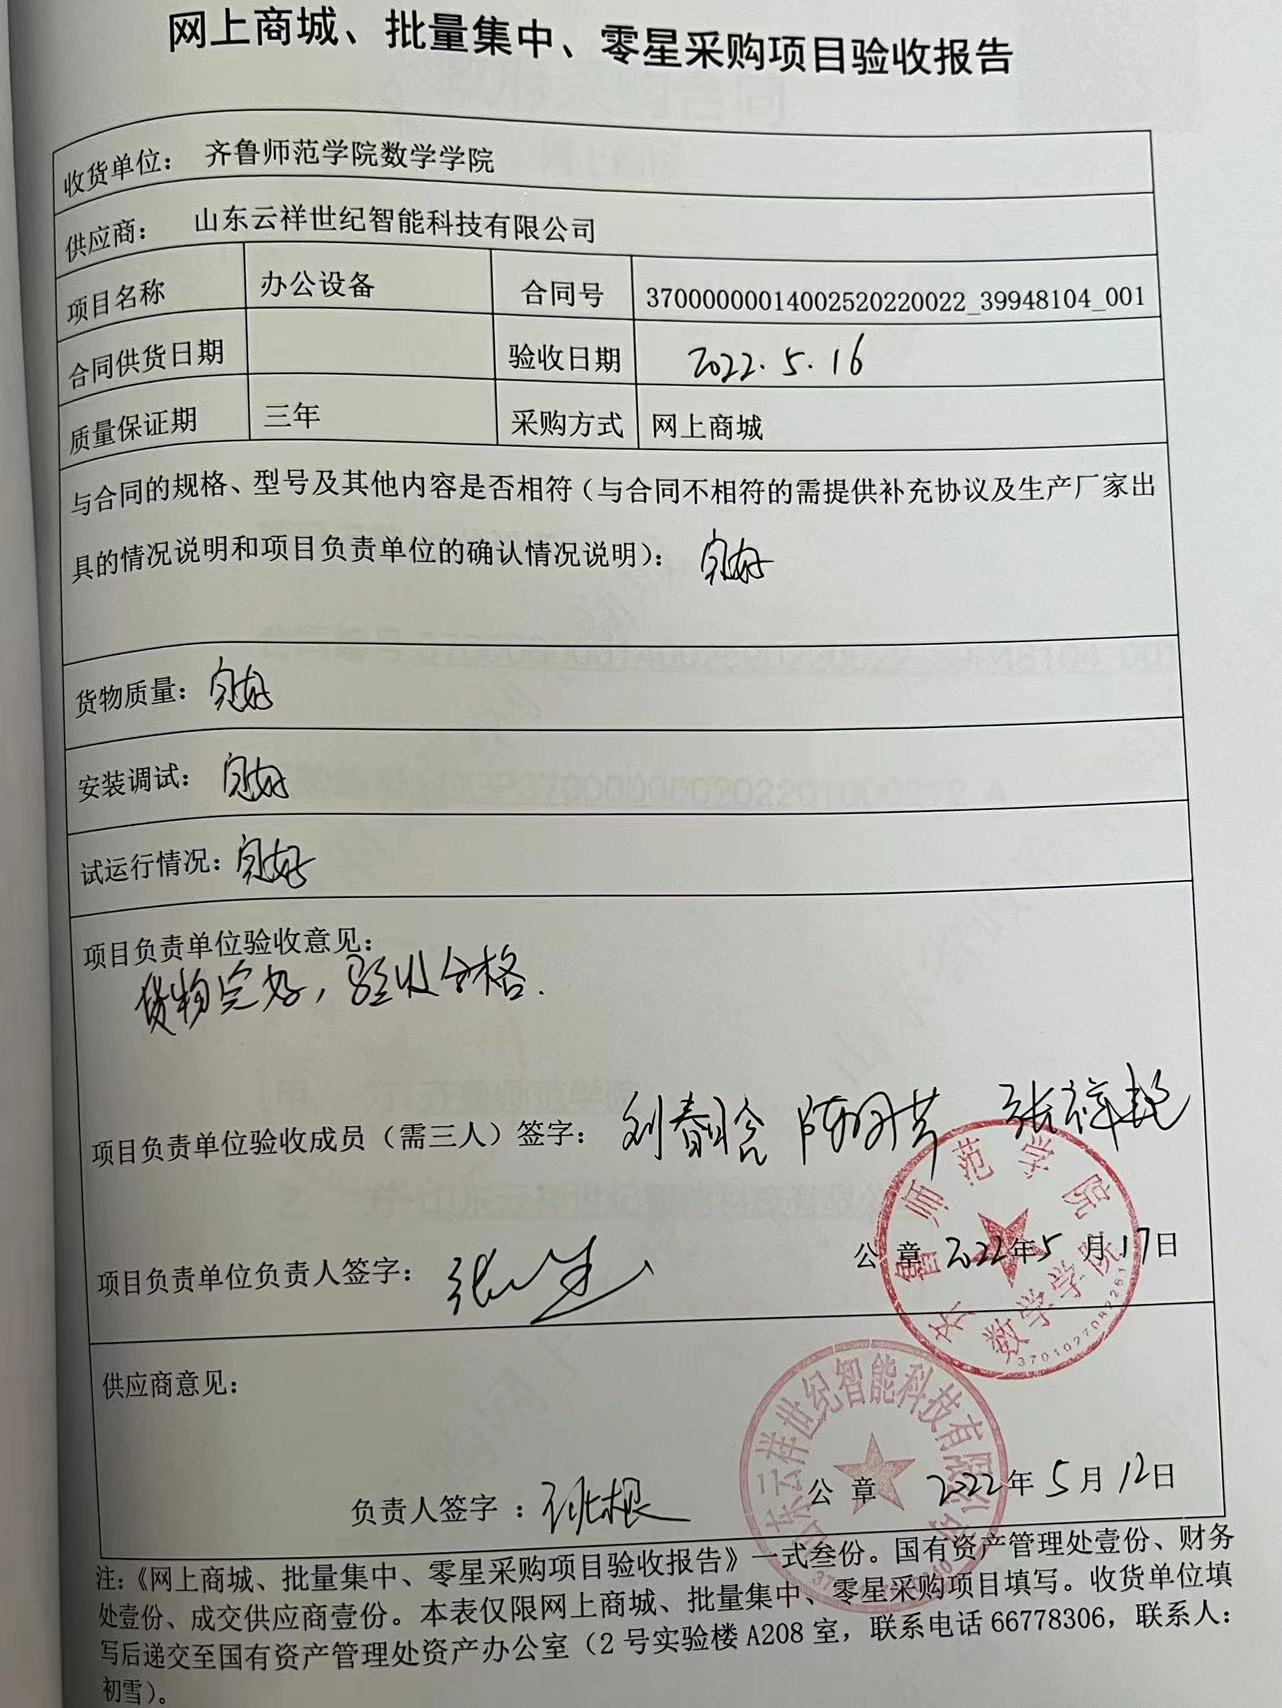 网上商城、批量集中、零星采购项目验收报告
收货单位： 齐鲁师范学院数学学院
供应商： 山东云祥世纪智能科技有限公司
项目名称 办公设备 合同号 37000000014002520220022_39948104_001
合同供货日期 验收日期 2022.5.16
质量保证期 三年 采购方式 网上商城
与合同的规格、型号及其他内容是否相符（与合同不相符的需提供补充协议及生产厂家出
具的情况说明和项目负责单位的确认情况说明）： 完好
货物质量： 完好
安装调试： 完好
试运行情况： 完好
项目负责单位验收意见：
货物完好，验收合格.
项目负责单位验收成员（需三人）签字：
项目负责单位负责人签字： 公 章 2022年5月17日
齐鲁师范学院
数学学院
供应商意见：
山东云祥世纪智能科技有限公司
负责人签字： 公 章 2022年5月12日
注：《网上商城、批量集中、零星采购项目验收报告》一式叁份。国有资产管理处壹份、财务
处壹份、成交供应商壹份。本表仅限网上商城、批量集中、零星采购项目填写。收货单位填
写后递交至国有资产管理处资产办公室（2号实验楼A208室，联系电话66778306，联系人：
初雪）。